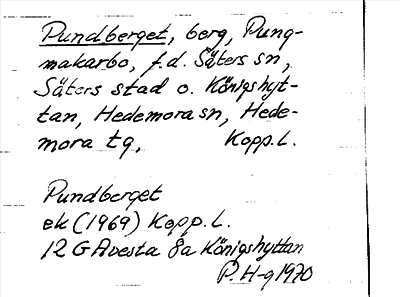 Pundberget, berg, Pung-
makarbo, f.d. Säters sn,
Säters stad o. Königshyt-
tan, Hedemora sn, Hede-
mora tg, Kopp.l.
Pundberget
ek (1969) Kopp.l.
12 G Avesta 8a Königshyttan
P. H-g 1970